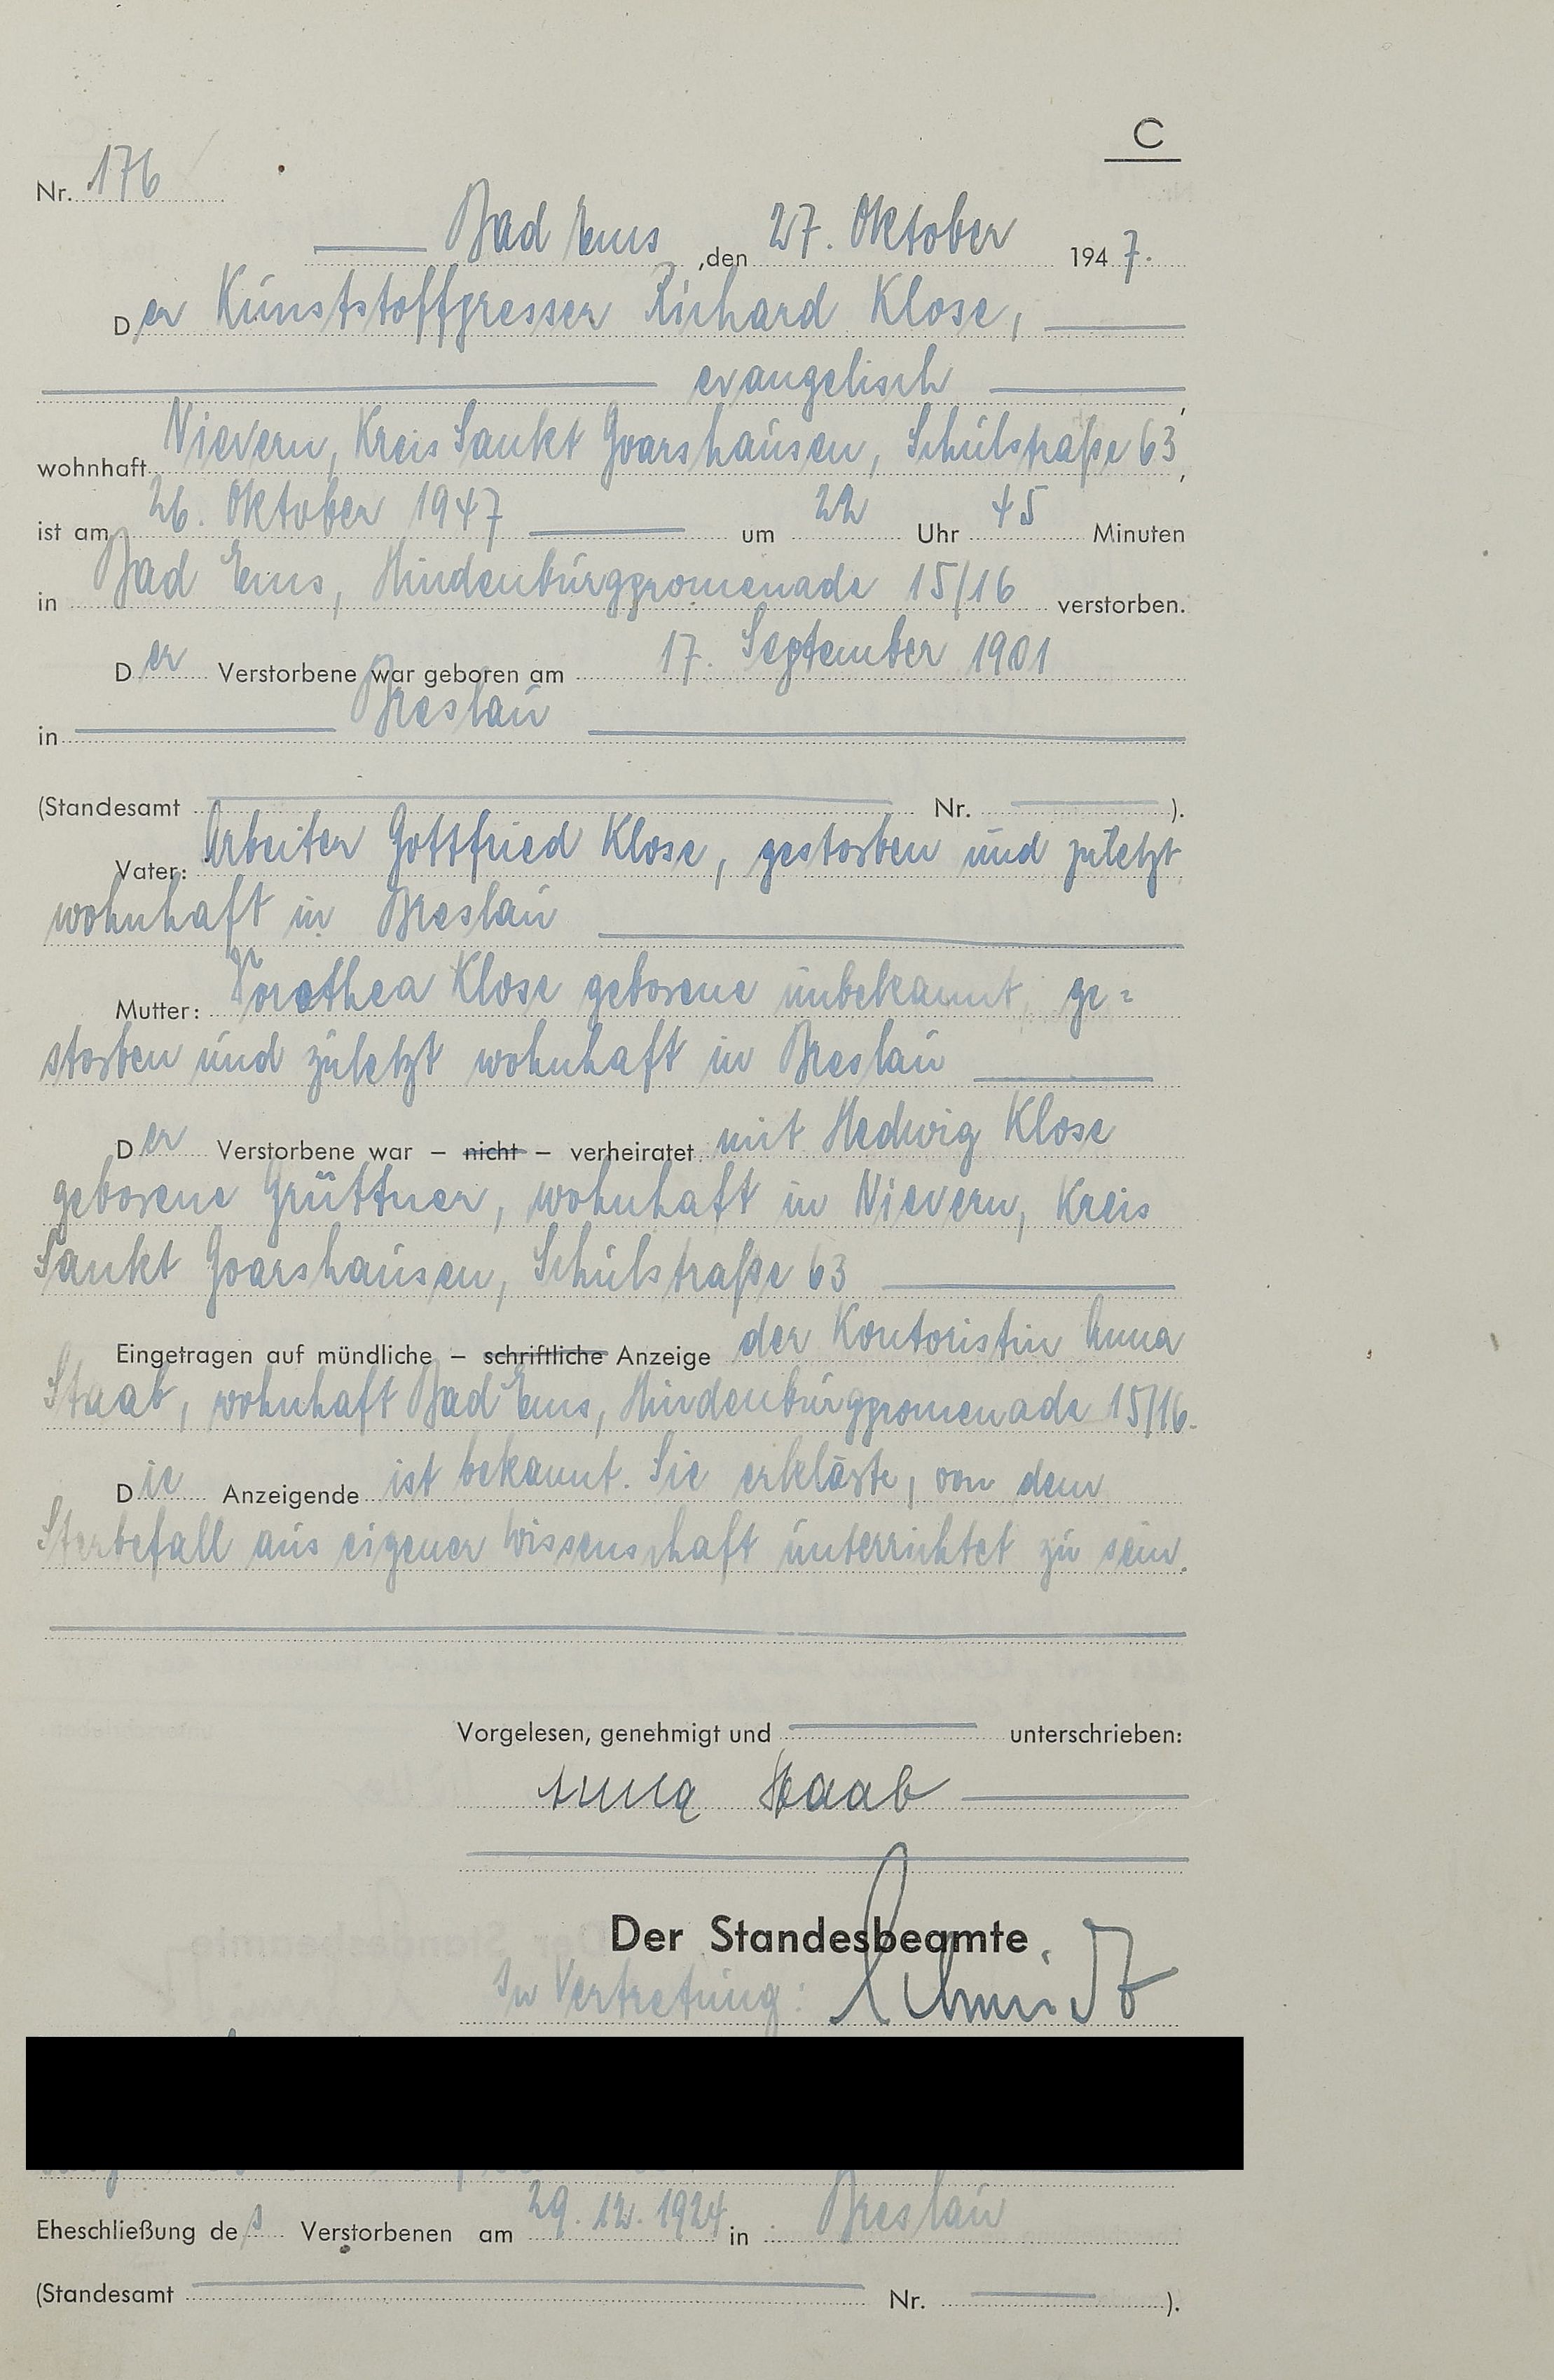 C
Nr. 176
Bad Ems, den 27. Oktober 1947.
Der Kunststoffpresser Richard Klose,
evangelisch,
wohnhaft Nievern, Kreis Sankt Goarshausen, Schulstraße 63,
ist am 26. Oktober 1947 um 22 Uhr 45 Minuten
in Bad Ems, Hindenburgpromenade 15/16 verstorben.
Der Verstorbene war geboren am 17. September 1901
in Breslau
(Standesamt Nr. ).
Vater: Arbeiter Gottfried Klose, gestorben und zuletzt
wohnhaft in Breslau
Mutter: Dorothea Klose geborene unbekannt, ge=
storben und zuletzt wohnhaft in Breslau
Der Verstorbene war – nicht – verheiratet mit Hedwig Klose
geborene Grüttner, wohnhaft in Nievern, Kreis
Sankt Goarshausen, Schulstraße 63
Eingetragen auf mündliche – schriftliche Anzeige der Kontoristin Anna
Staab, wohnhaft Bad Ems, Hindenburgpromenade 15/16.
Die Anzeigende ist bekannt. Sie erklärte, von dem
Sterbefall aus eigener Wissenschaft unterrichtet zu sein.
Vorgelesen, genehmigt und unterschrieben:
Anna Staab
Der Standesbeamte
In Vertretung: Schmidt
Eheschließung des Verstorbenen am 29.12.1924 in Breslau
(Standesamt Nr. ).